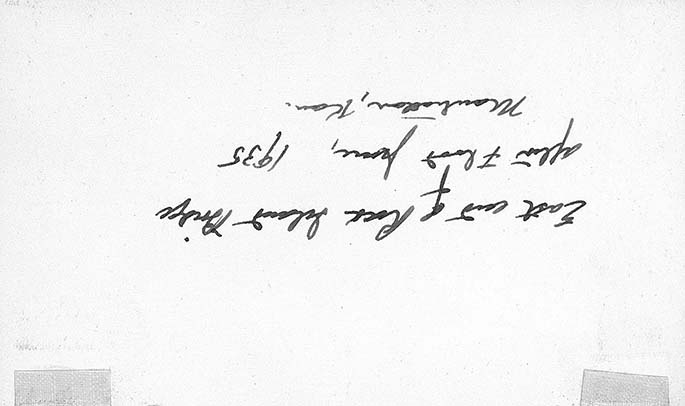 East end of Rock Island Bridge
after Flood June, 1935
Manhattan, Kan.